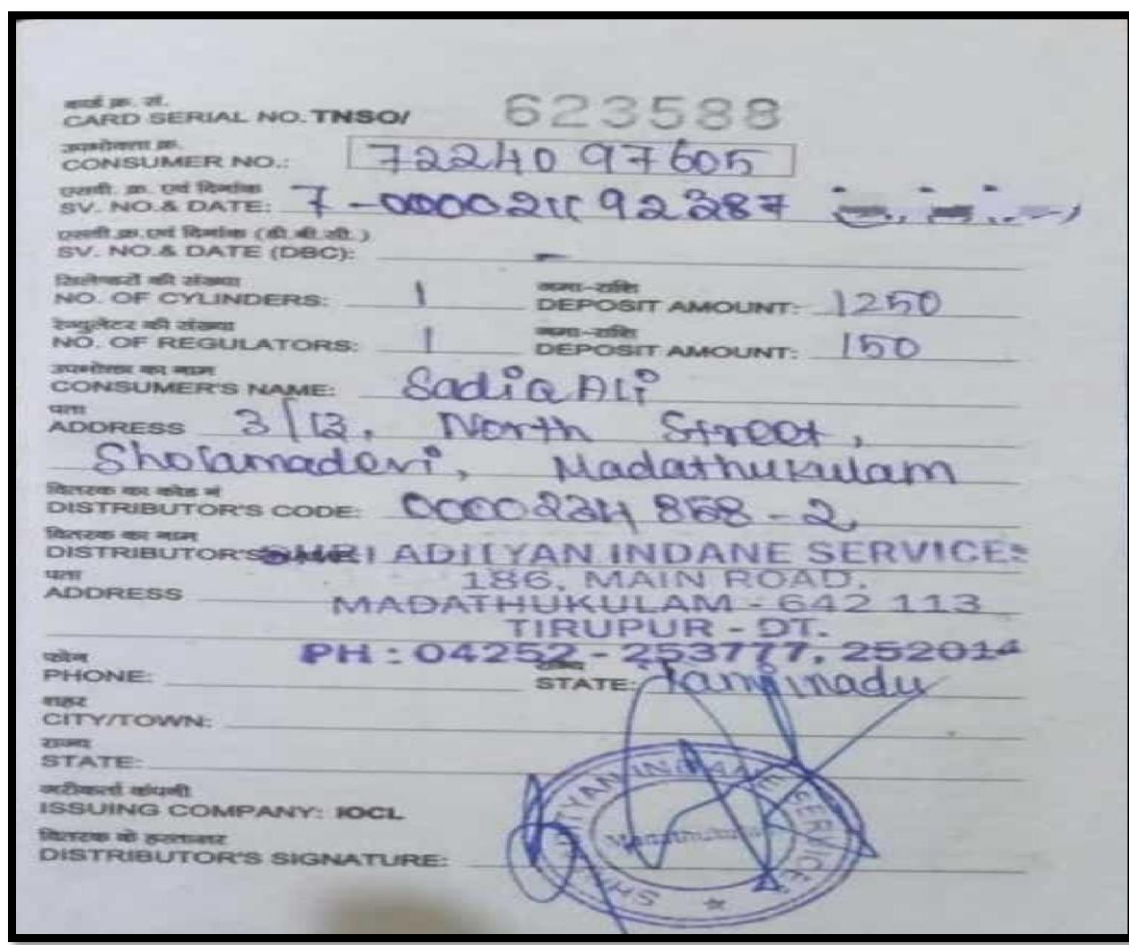 कार्ड क्र. सं.
CARD SERIAL NO. TNSO/ 623588
उपभोक्ता क्र.
CONSUMER NO.: 7224097605
एसवी. क्र. एवं दिनांक
SV. NO.& DATE: 7-00002119 2387
एसवी.क्र.एवं दिनांक (डी.बी.सी.)
SV. NO.& DATE (DBC): -
सिलेण्डरों की संख्या जमा-राशि
NO. OF CYLINDERS: 1 DEPOSIT AMOUNT: 1250
रेग्युलेटर की संख्या जमा-राशि
NO. OF REGULATORS: 1 DEPOSIT AMOUNT: 150
उपभोक्ता का नाम
CONSUMER'S NAME: Sadiq Ali
पता
ADDRESS 3/13, North Street,
Sholamadevi, Madathukulam
वितरक का कोड नं
DISTRIBUTOR'S CODE: 0000234858-2
वितरक का नाम
DISTRIBUTOR'S SHRI ADITYAN INDANE SERVICES
पता
ADDRESS 186, MAIN ROAD,
MADATHUKULAM - 642 113
TIRUPUR - DT.
PH : 04252 - 253777, 252014
फोन राज्य
PHONE: STATE: Tamilnadu
शहर
CITY/TOWN:
राज्य
STATE:
जारीकर्ता कंपनी
ISSUING COMPANY: IOCL
वितरक के हस्ताक्षर
DISTRIBUTOR'S SIGNATURE:
SHRI ADITYAN INDANE SERVICES
Madathukulam